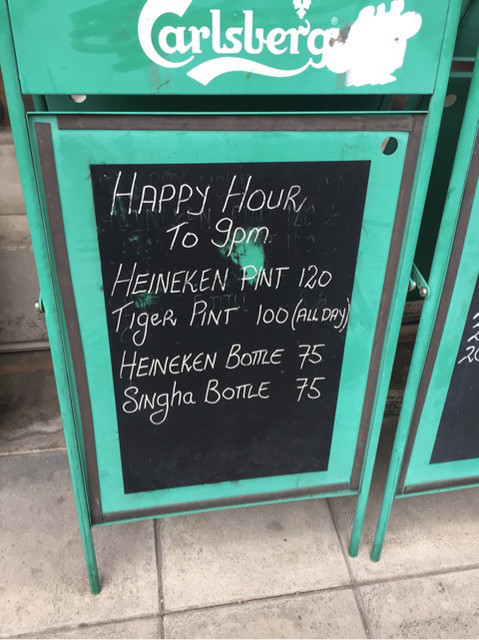 Carlsberg
HAPPY HOUR
TO 9pm
HEINEKEN PINT 120
TIGER PINT 100 (ALL DAY)
HEINEKEN BOTTLE 75
SINGha BOTTLE 75